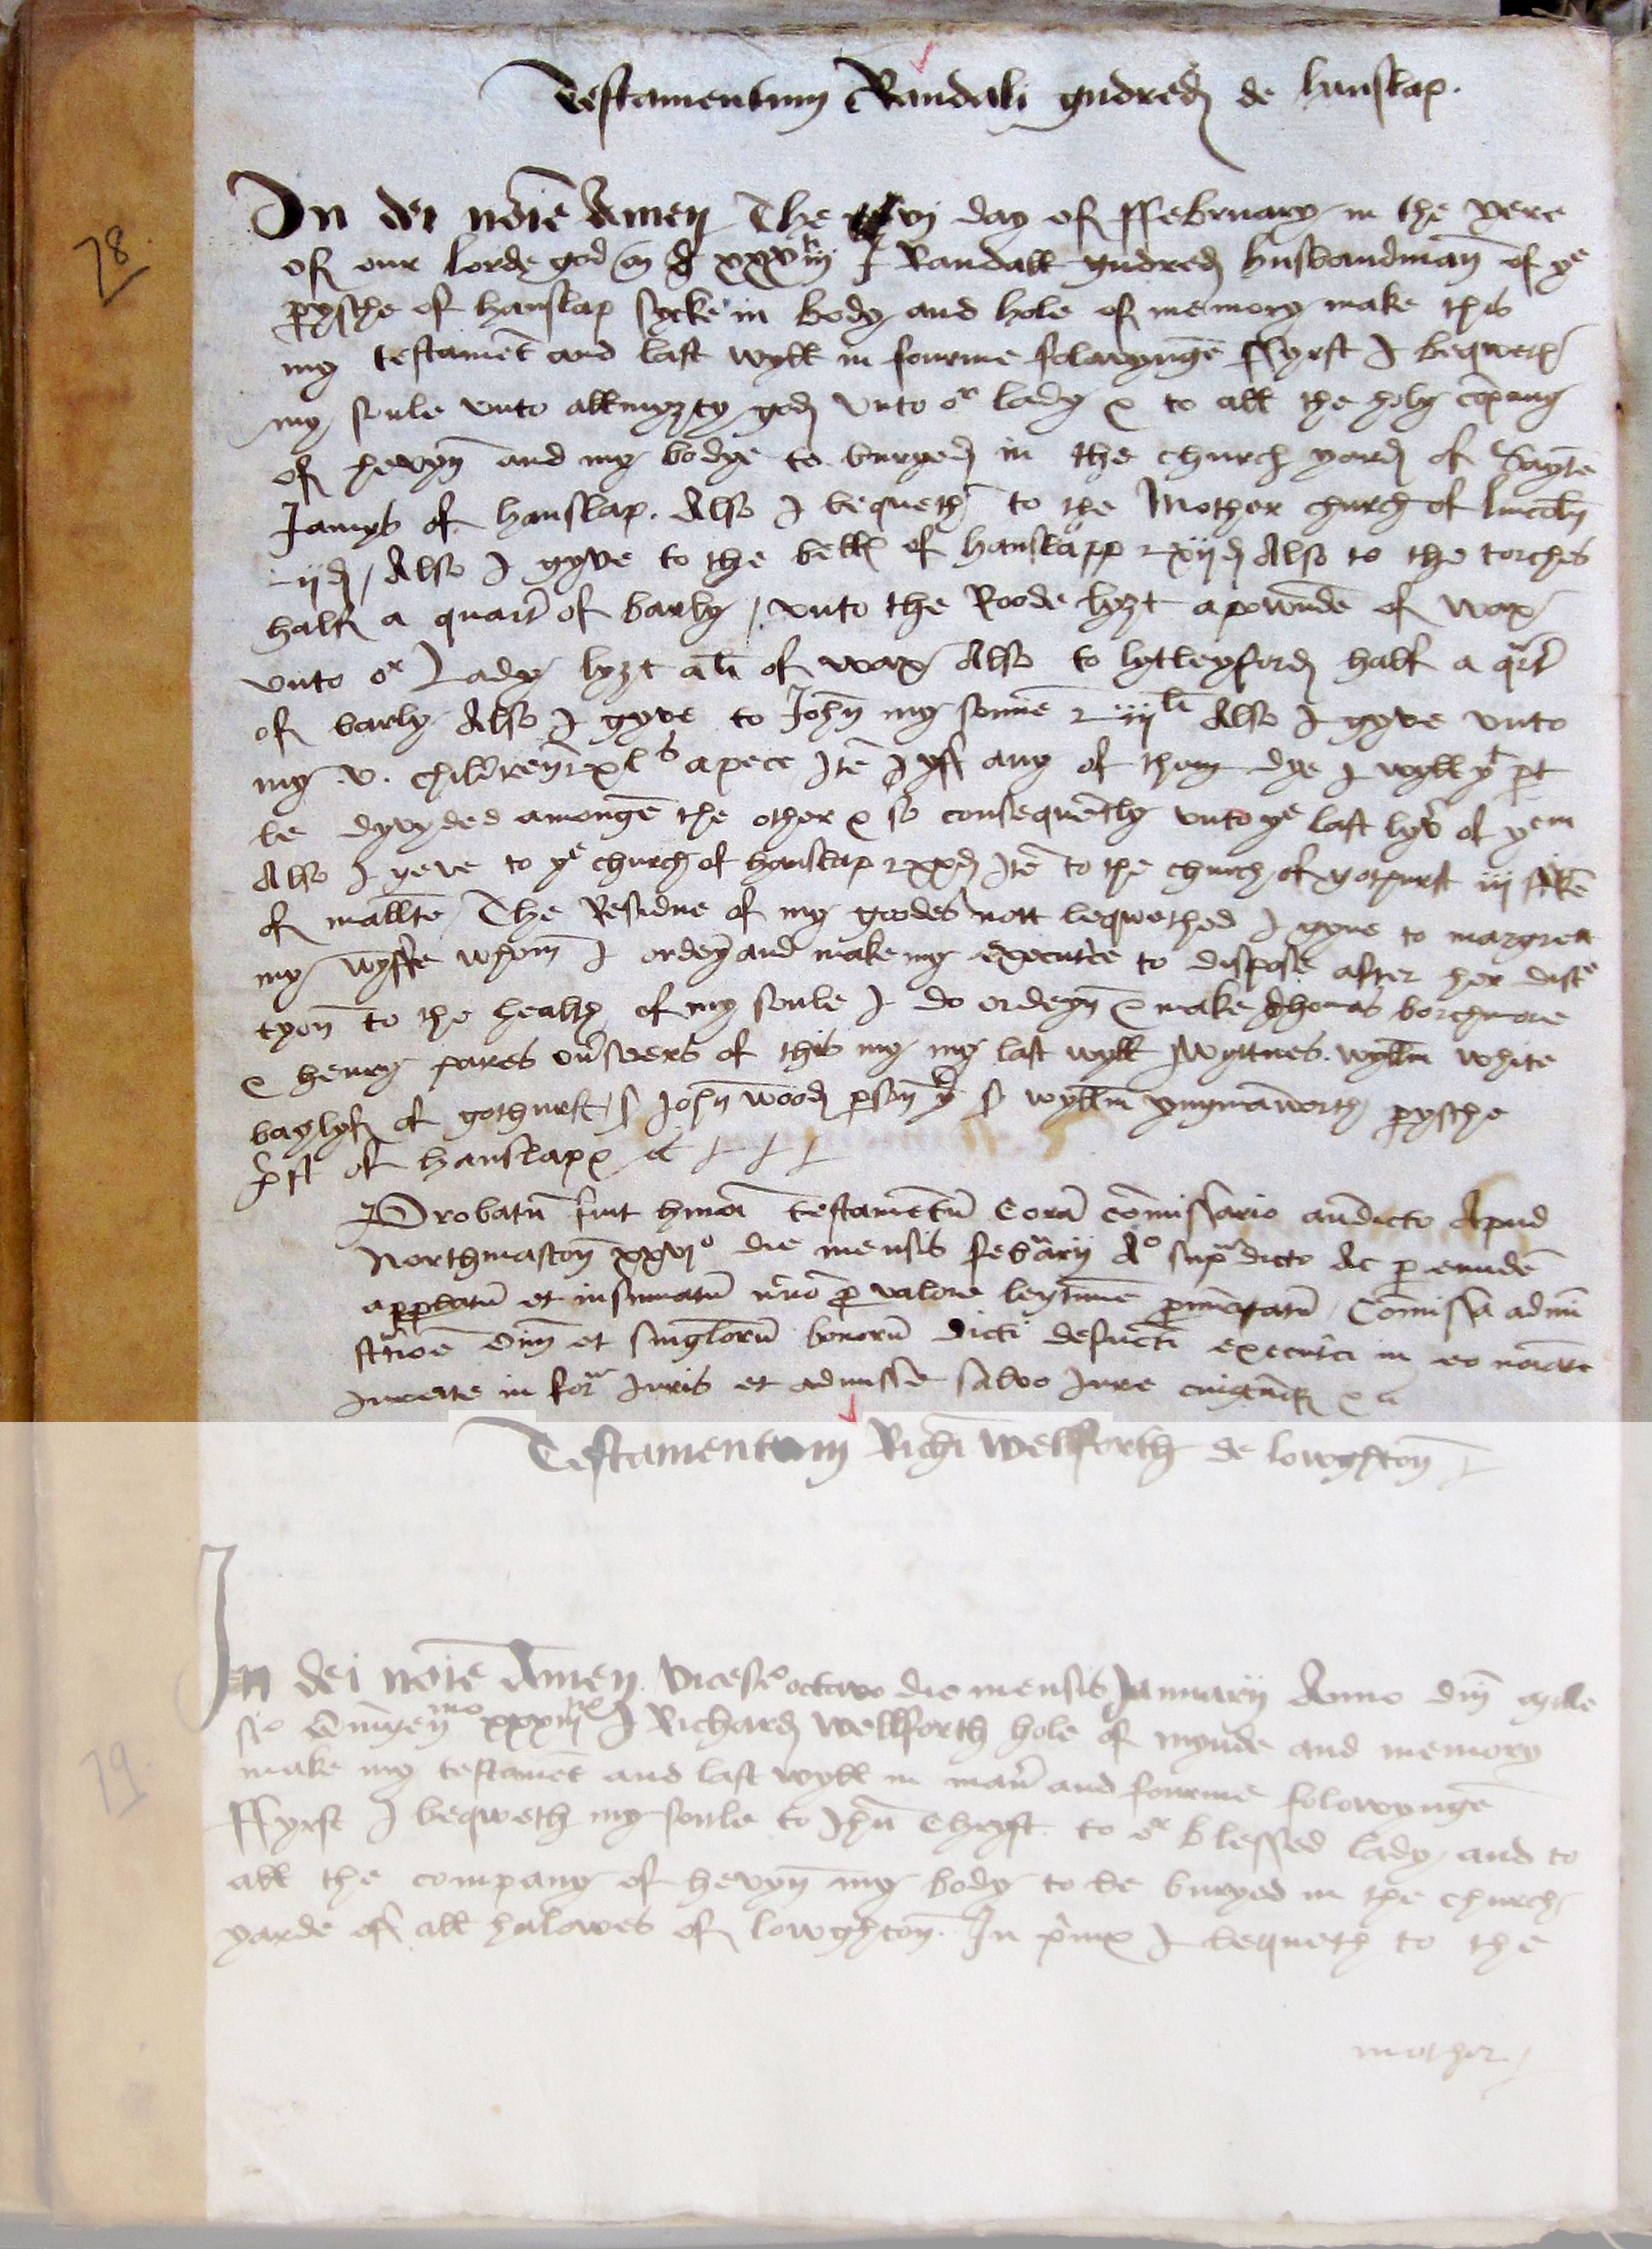 78
Testamentum Randali gudred de hanslap.
In dei nōie Amen The vj day of ffebruary in the yere
of our lorde god m d xxxviij I Randall gudred husbandman̄ of yᵉ
pysche of hanslap sycke in body and hole of memory make this
my testamēt and last wyll in fourme folowynge ffyrst I beqweth
my soule unto allmyzty god unto oʳ lady & to all the holy cōpany
of hevyn̄ and my bodye to buryed in the church yard of Saynte
Jamys of hanslap. Also I bequeth to the Mother church of lincoln̄
ijd / Also I gyve to the bells of hanslapp xijd Also to the torches
half a quart̄ of barly / unto the Roode lyzt a pownde of wax
unto oʳ Lady lyzt a li of wax Also to lytleyford half a qʳt̄
of barly Also I gyve to John̄ my sonne iijˡⁱ Also I gyve unto
my v. children xlˢ a pece Itē yff any of them dye I wyll yᵗ pt
be dyvyded amonge the other & so consequētly unto yᵉ last lyv̄ of yᵉᵐ
Also I yeve to yᵉ church of hanslap xxd Itē to the church of gothurst iij stk̄e
of mallte / The Residue of my goodes nott beqwethed I gyve to margret
my wyffe whom I ordeyn̄ and make my executʳce to dispose after her discᵉ
tyon̄ to the healthe of my soule I do ordeyn̄ & make Thomas borchmore
& henry pares ovʳseers of this my my last wyll Wyttnes. wyllm̄ white
baylyf of gothurst / s John̄ wood pson̄ yʳ s wyllm̄ yngmāworth pysche
pʳst of hanslapp &c
Probatū fuit hmōi testamētū Corā cōmissario antedicto Apud
Northmaston̄ xxvjᵒ die mensis febʳuarij Aᵒ supʳdicto Ac p eundē
approbatū et insinuatū pro valore legitime pnūciatū Cōmissa admī
stʳcōe ōim et singlorū bonorū dicti defūcti executʳci in eo nōiāte
Jurate in forᵃ Juris et admisse salvo Jure cuiuscūq &c
Testamentum Richi Wellforth de lowghton̄
79
In dei nōie Amen. Vicesīᵒ octavo die mensis Januarij Anno dm̄ mille
sīᵒ Quīgenᵐᵒ xxxiijᵒ I Richard Wellforth hole of mynde and memory
make my testamēt and last wyll in man̄ and fourme folowynge
ffyrst I beqweth my soule to Jhū Chryst to oʳ blessed lady and to
all the company of hevyn̄ my body to be buryed in the church
yarde of all halowes of lowghton̄. In pʳmis I bequeth to the
mother /